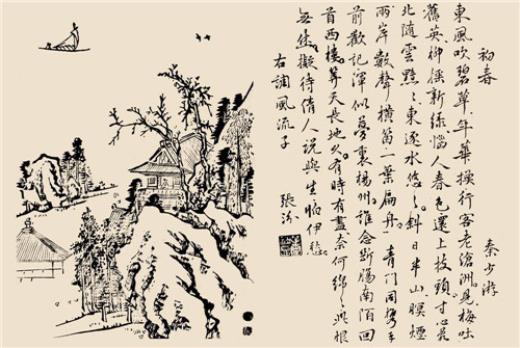 初春
秦少游
東風吹碧草年華換行客老滄洲見梅吐
舊英柳摇新綠惱人春色還上枝頭寸心亂
北隨雲黯〻東逐水悠〻斜日半山暝煙
兩岸數聲橫笛一葉扁舟青門同攜手
前歡記渾似夢裏楊州誰念斷腸南陌回
首西樓算天長地久有時有盡奈何綿〻此恨
無休擬待倩人說與生怕伊愁
右調風流子
張